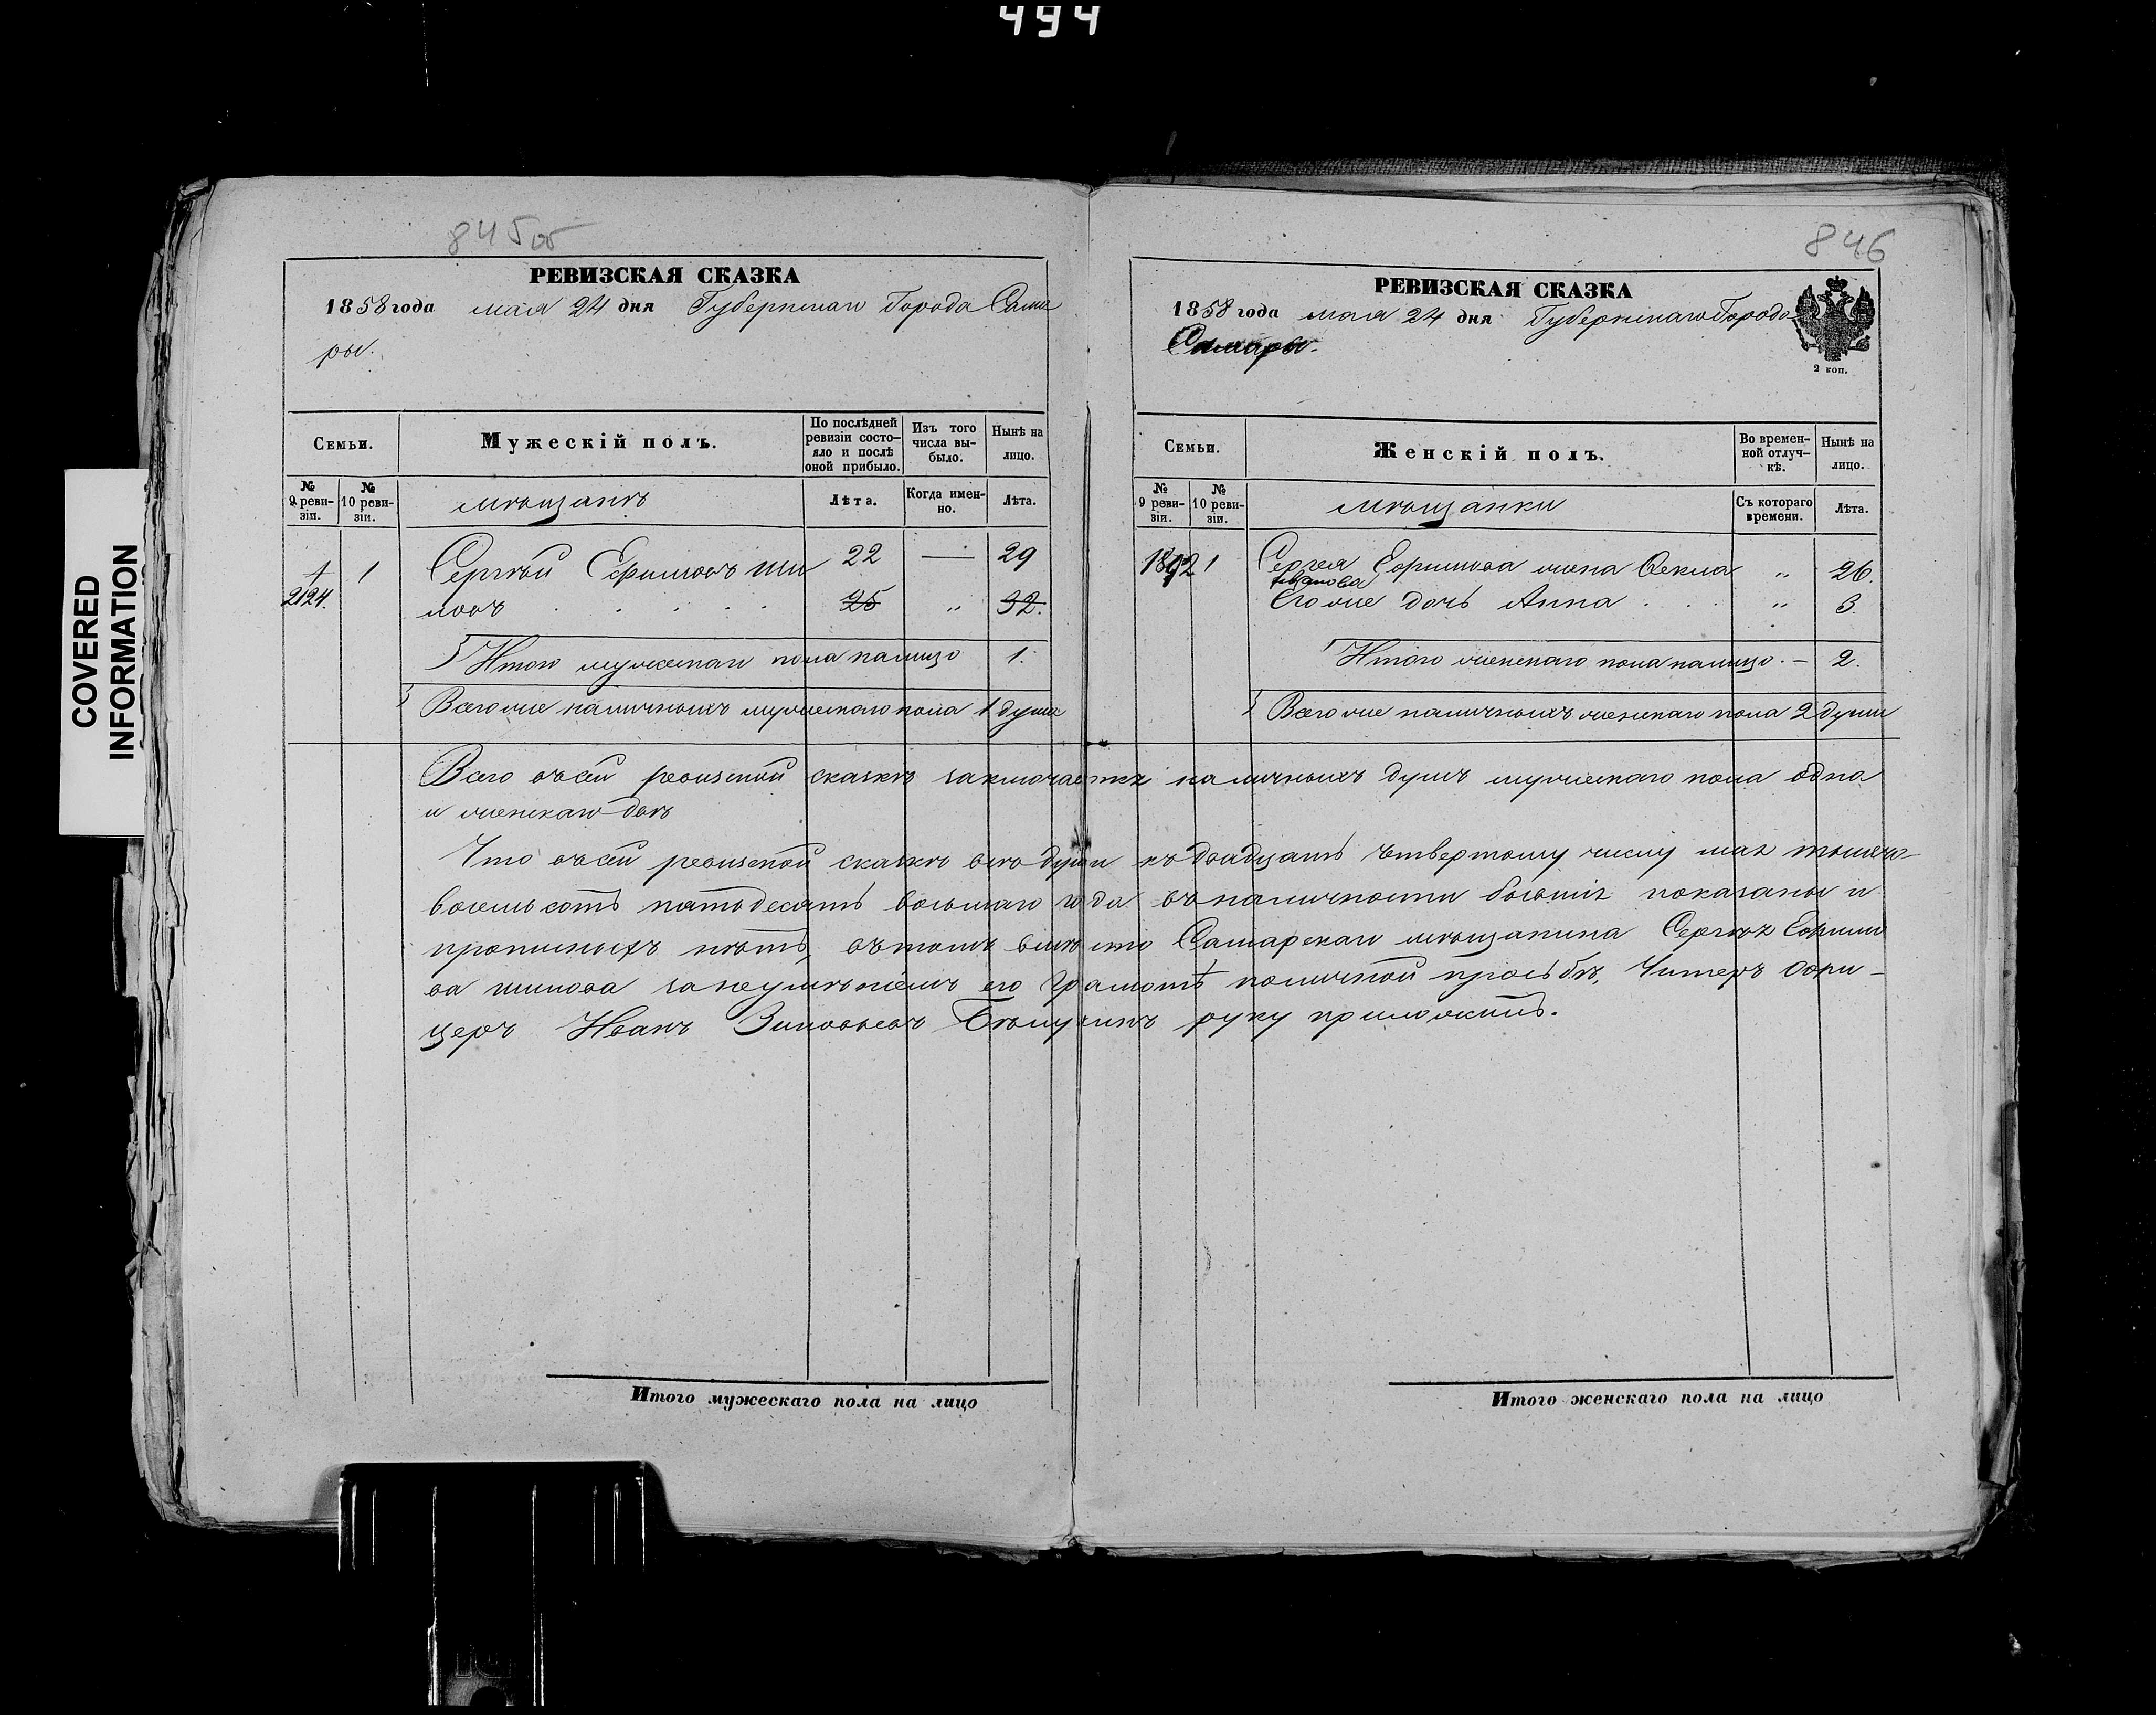 494
845об
РЕВИЗСКАЯ СКАЗКА
1858 года мая 24 дня Губернскаго Города Сама
ры.
Семьи.
Мужескій полъ.
По послѣдней ревизіи состо-яло и послѣ оной прибыло.
Изъ того числа вы-было.
Нынѣ на лицо.
№ 9 реви-зіи.
№ 10 реви-зіи.
мѣщанѣ
Лѣта.
Когда имен-но.
Лѣта.
1 Сергѣй Ефимовъ Ши 22 — 29
2124. ловъ . . . . . 25 „ 32.
Итого мужескаго пола налицо 1.
Всего же наличныхъ мужескаго пола 1 душа
846
РЕВИЗСКАЯ СКАЗКА
1858 года мая 24 дня Губернскаго Города
Самары.
2 коп.
Семьи.
Женскій полъ.
Во времен-ной отлуч-кѣ.
Нынѣ на лицо.
№ 9 реви-зіи.
№ 10 реви-зіи.
мѣщанки
Съ котораго времени.
Лѣта.
1 Сергея Ефимова жена Фекла „ 26.
Иванова
Его же дочь Анна . . „ 3.
Итого женскаго пола налицо. — 2.
Всего же наличныхъ женскаго пола 2 души
Всего въ сей ревизской сказкѣ заключается наличныхъ душъ мужескаго пола одна
и женскаго двѣ
Что въ сей ревизской сказкѣ всѣ души къ двадцать четвертому числу мая тысяча
восемьсотъ пятьдесятъ восьмаго года въ наличности бывшія показаны и
прописныхъ нѣтъ, въ томъ вмѣсто Самарскаго мѣщанина Сергѣя Ефимо
ва Шилова за неумѣніемъ его грамотѣ по личной просьбѣ, Унтеръ Офи-
церъ Иванъ Зиновьевъ руку приложилъ.
Итого мужескаго пола на лицо
Итого женскаго пола на лицо
COVERED
INFORMATION